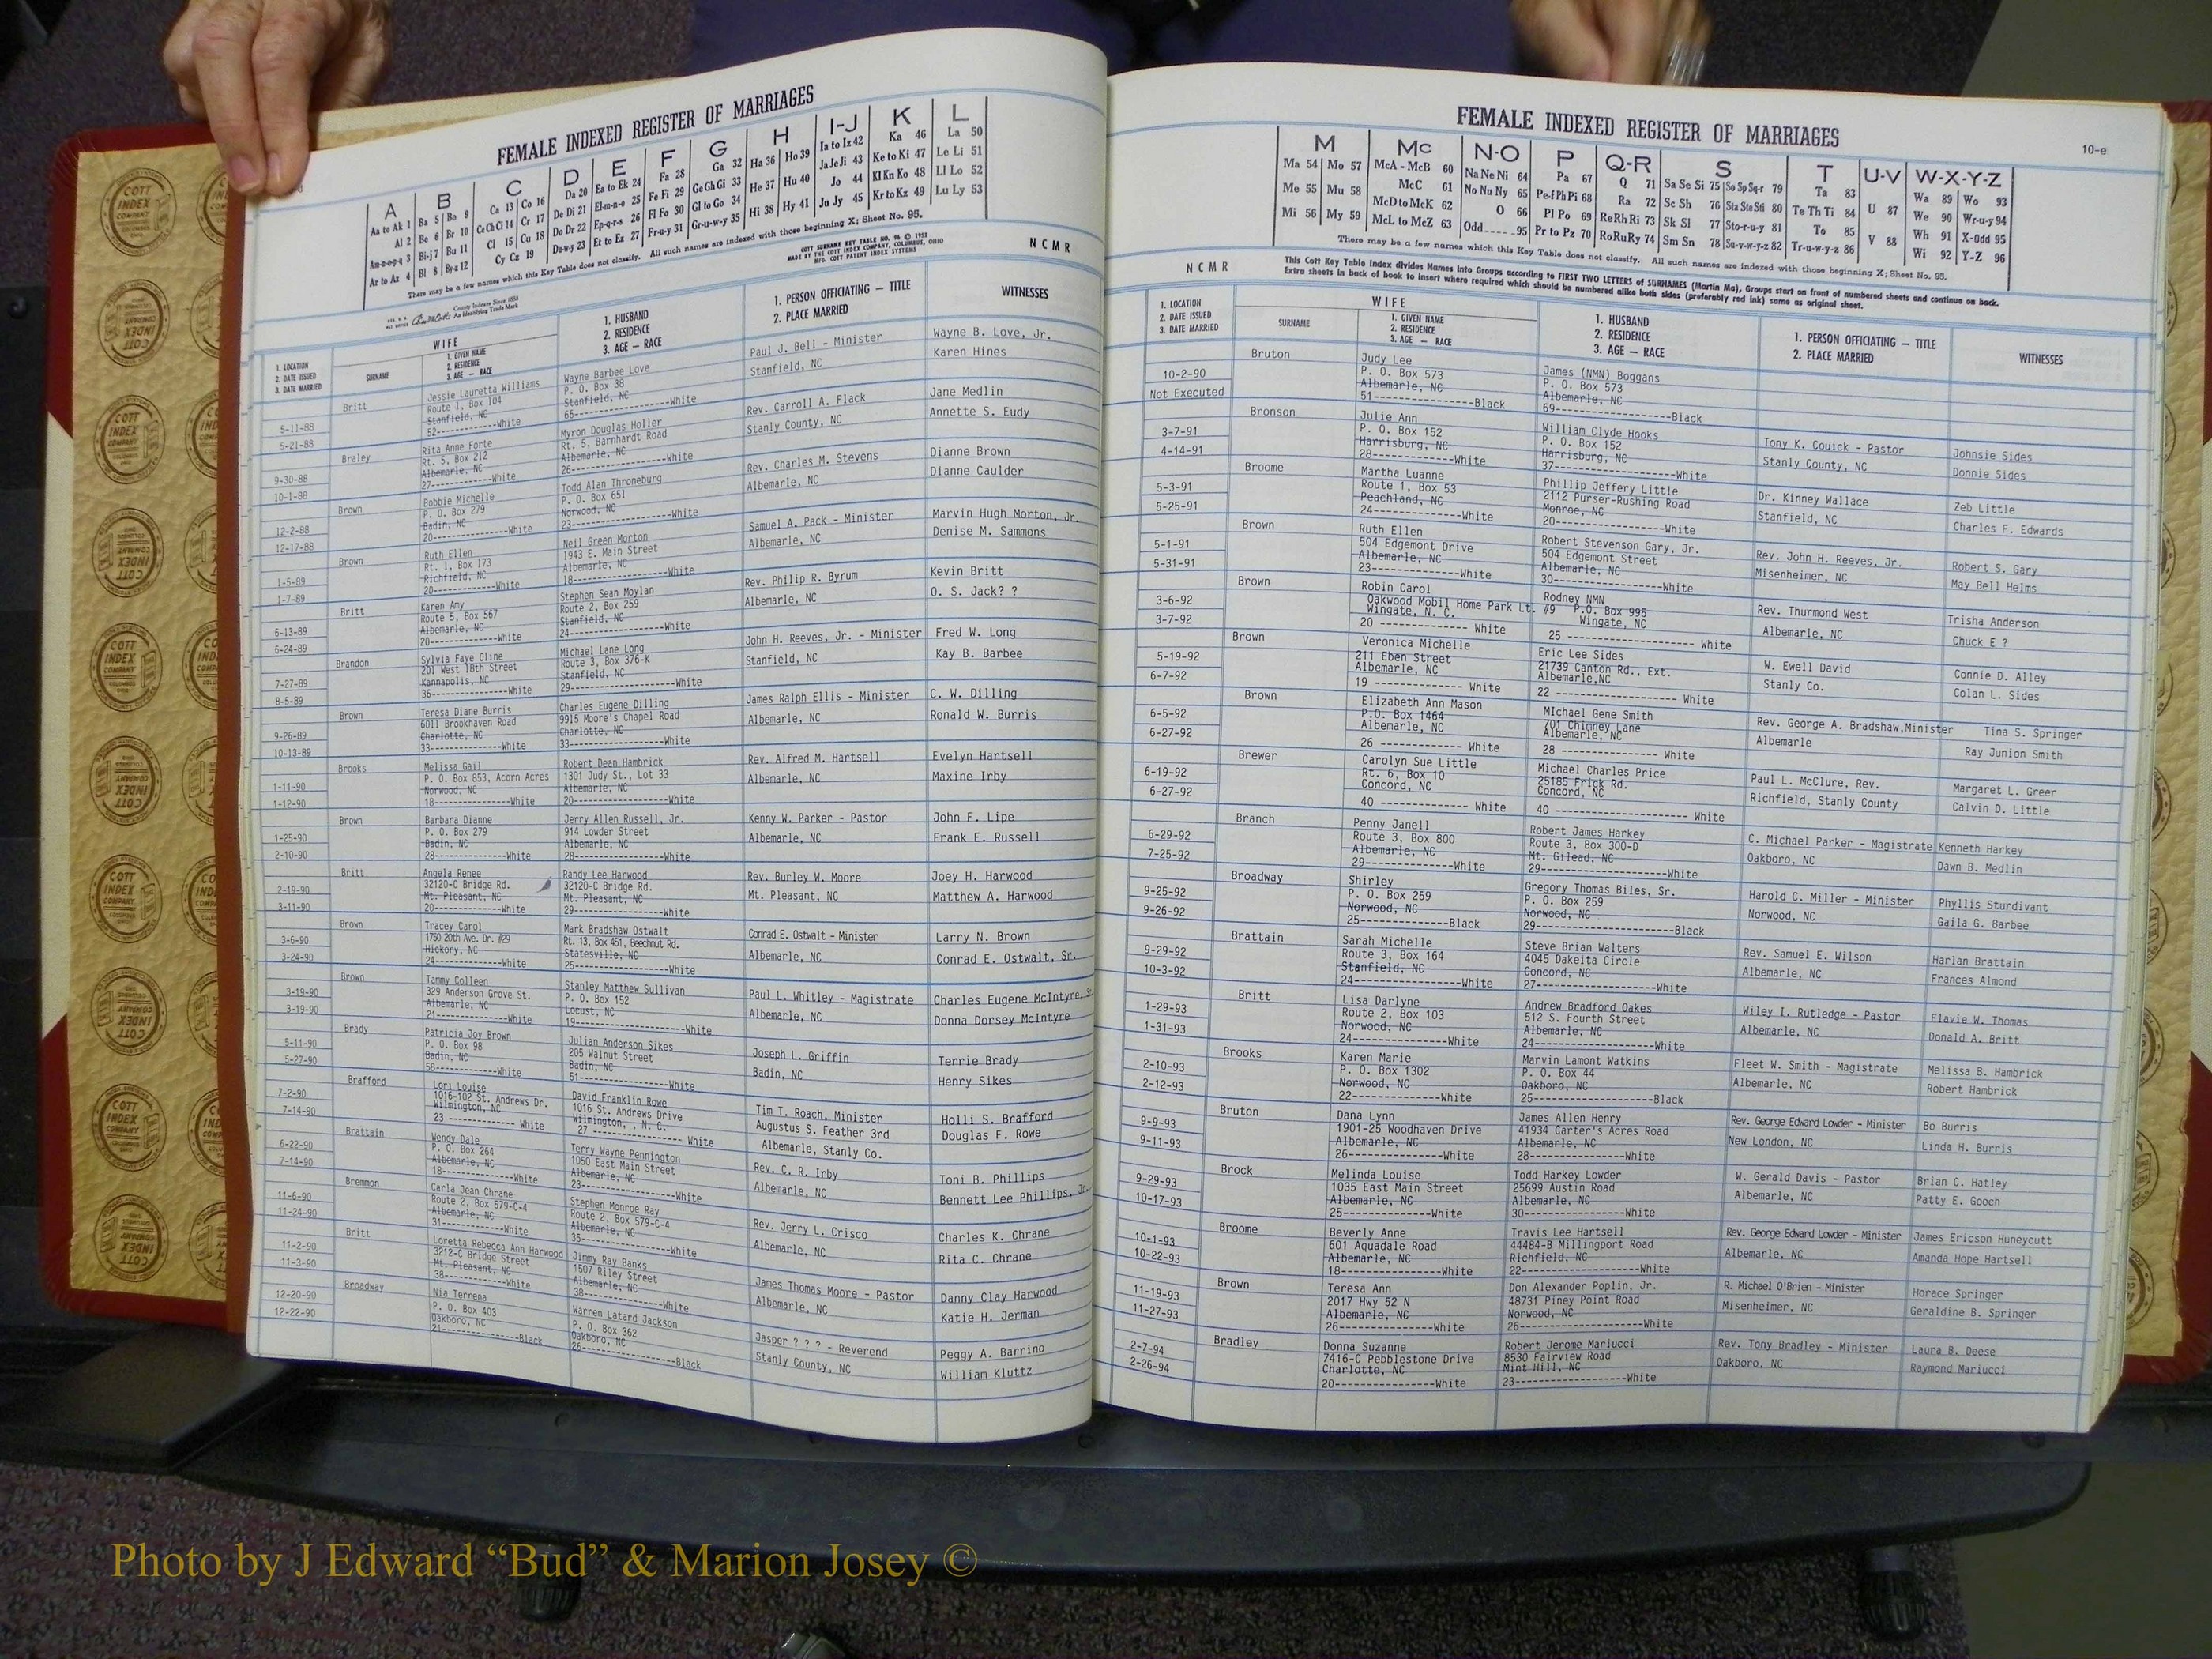 FEMALE INDEXED REGISTER OF MARRIAGES
A B C D E F G H I-J K L
Aa to Ak 1 Ba 5 Bo 9 Ca 13 Co 16 Da 20 Ea to Ek 24 Fa 28 Ga 32 Ha 36 Ho 39 Ia to Iz 42 Ka 46 La 50
Al 2 Be 6 Br 10 Ce Ch Ci 14 Cr 17 De Di 21 El-m-n-o 25 Fe Fi 29 Ge Gh Gi 33 He 37 Hu 40 Ja Je Ji 43 Ke to Ki 47 Le Li 51
Am-n-o-p-q 3 Bi-j 7 Bu 11 Cl 15 Cu 18 Do Dr 22 Ep-q-r-s 26 Fl Fo 30 Gl to Go 34 Hi 38 Hy 41 Jo 44 Kl Kn Ko 48 Ll Lo 52
Ar to Az 4 Bl 8 By-z 12 Cy Cz 19 Du-w-y 23 Et to Ez 27 Fr-u-y 31 Gr-u-w-y 35 Ju Jy 45 Kr to Kz 49 Lu Ly 53
There may be a few names which this Key Table does not classify. All such names are indexed with those beginning X; Sheet No. 95.
COTT SURNAME KEY TABLE NO. 96 © 1952
MADE BY THE COTT INDEX COMPANY, COLUMBUS, OHIO
MFG. COTT PATENT INDEX SYSTEMS
N C M R
County Indexes Since 1888
An Identifying Trade Mark
1. LOCATION
2. DATE ISSUED
3. DATE MARRIED
WIFE
SURNAME
1. GIVEN NAME
2. RESIDENCE
3. AGE — RACE
1. HUSBAND
2. RESIDENCE
3. AGE — RACE
1. PERSON OFFICIATING — TITLE
2. PLACE MARRIED
WITNESSES
Britt Jessie Lauretta Williams Wayne Barbee Love Paul J. Bell - Minister Wayne B. Love, Jr.
Route 1, Box 104 P. O. Box 38 Stanfield, NC Karen Hines
5-11-88 Stanfield, NC Stanfield, NC
5-21-88 52------------White 65------------White
Braley Rita Anne Forte Myron Douglas Holler Rev. Carroll A. Flack Jane Medlin
Rt. 5, Box 212 Rt. 5, Barnhardt Road Stanly County, NC Annette S. Eudy
9-30-88 Albemarle, NC Albemarle, NC
10-1-88 27------------White 26------------White
Brown Bobbie Michelle Todd Alan Throneburg Rev. Charles M. Stevens Dianne Brown
P. O. Box 279 P. O. Box 651 Albemarle, NC Dianne Caulder
12-2-88 Badin, NC Norwood, NC
12-17-88 20------------White 23------------White
Brown Ruth Ellen Neil Green Morton Samuel A. Pack - Minister Marvin Hugh Morton, Jr.
Rt. 1, Box 173 1943 E. Main Street Albemarle, NC Denise M. Sammons
1-5-89 Richfield, NC Albemarle, NC
1-7-89 20------------White 18------------White
Britt Karen Amy Stephen Sean Moylan Rev. Philip R. Byrum Kevin Britt
Route 5, Box 567 Route 2, Box 259 Albemarle, NC O. S. Jack? ?
6-13-89 Albemarle, NC Stanfield, NC
6-24-89 20------------White 24------------White
Brandon Sylvia Faye Cline Michael Lane Long John H. Reeves, Jr. - Minister Fred W. Long
201 West 18th Street Route 3, Box 376-K Stanfield, NC Kay B. Barbee
7-27-89 Kannapolis, NC Stanfield, NC
8-5-89 36------------White 29------------White
Brown Teresa Diane Burris Charles Eugene Dilling James Ralph Ellis - Minister C. W. Dilling
6011 Brookhaven Road 9915 Moore's Chapel Road Albemarle, NC Ronald W. Burris
9-26-89 Charlotte, NC Charlotte, NC
10-13-89 33------------White 33------------White
Brooks Melissa Gail Robert Dean Hambrick Rev. Alfred M. Hartsell Evelyn Hartsell
P. O. Box 853, Acorn Acres 1301 Judy St., Lot 33 Albemarle, NC Maxine Irby
1-11-90 Norwood, NC Albemarle, NC
1-12-90 18------------White 20------------White
Brown Barbara Dianne Jerry Allen Russell, Jr. Kenny W. Parker - Pastor John F. Lipe
P. O. Box 279 914 Lowder Street Albemarle, NC Frank E. Russell
1-25-90 Badin, NC Albemarle, NC
2-10-90 28------------White 28------------White
Britt Angela Renee Randy Lee Harwood Rev. Burley W. Moore Joey H. Harwood
32120-C Bridge Rd. 32120-C Bridge Rd. Mt. Pleasant, NC Matthew A. Harwood
2-19-90 Mt. Pleasant, NC Mt. Pleasant, NC
3-11-90 20------------White 29------------White
Brown Tracey Carol Mark Bradshaw Ostwalt Conrad E. Ostwalt - Minister Larry N. Brown
1750 20th Ave. Dr. #29 Rt. 13, Box 451, Beechnut Rd. Albemarle, NC Conrad E. Ostwalt, Sr.
3-6-90 Hickory, NC Statesville, NC
3-24-90 24------------White 25------------White
Brown Tammy Colleen Stanley Matthew Sullivan Paul L. Whitley - Magistrate Charles Eugene McIntyre, S
329 Anderson Grove St. P. O. Box 152 Albemarle, NC Donna Dorsey McIntyre
3-19-90 Albemarle, NC Locust, NC
3-19-90 21------------White 19------------White
Brady Patricia Joy Brown Julian Anderson Sikes Joseph L. Griffin Terrie Brady
P. O. Box 98 205 Walnut Street Badin, NC Henry Sikes
5-11-90 Badin, NC Badin, NC
5-27-90 58------------White 51------------White
Brafford Lori Louise David Franklin Rowe Tim T. Roach, Minister Holli S. Brafford
7-2-90 1016-102 St. Andrews Dr. 1016 St. Andrews Drive Augustus S. Feather 3rd Douglas F. Rowe
7-14-90 Wilmington, NC Wilmington, , N. C. Albemarle, Stanly Co.
23 ------------ White 27 ------------ White
Brattain Wendy Dale Terry Wayne Pennington Rev. C. R. Irby Toni B. Phillips
6-22-90 P. O. Box 264 1050 East Main Street Albemarle, NC Bennett Lee Phillips, Jr.
7-14-90 Albemarle, NC Albemarle, NC
18------------White 23------------White
Bremmon Carla Jean Chrane Stephen Monroe Ray Rev. Jerry L. Crisco Charles K. Chrane
11-6-90 Route 2, Box 579-C-4 Route 2, Box 579-C-4 Albemarle, NC Rita C. Chrane
11-24-90 Albemarle, NC Albemarle, NC
31------------White 35------------White
Britt Loretta Rebecca Ann Harwood Jimmy Ray Banks James Thomas Moore - Pastor Danny Clay Harwood
11-2-90 3212-C Bridge Street 1507 Riley Street Albemarle, NC Katie H. Jerman
11-3-90 Mt. Pleasant, NC Albemarle, NC
38------------White 38------------White
Broadway Nia Terrena Warren Latard Jackson Jasper ? ? ? - Reverend Peggy A. Barrino
12-20-90 P. O. Box 403 P. O. Box 362 Stanly County, NC William Kluttz
12-22-90 Oakboro, NC Oakboro, NC
21------------Black 26------------Black
FEMALE INDEXED REGISTER OF MARRIAGES
10-e
M Mc N-O P Q-R S T U-V W-X-Y-Z
Ma 54 Mo 57 McA - McB 60 Na Ne Ni 64 Pa 67 Q 71 Sa Se Si 75 So Sp Sq-r 79 Ta 83 Wa 89 Wo 93
Me 55 Mu 58 McC 61 No Nu Ny 65 Pe-f Ph Pi 68 Ra 72 Sc Sh 76 Sta Ste Sti 80 Te Th Ti 84 U 87 We 90 Wr-u-y 94
Mi 56 My 59 McD to McK 62 O 66 Pl Po 69 Re Rh Ri 73 Sk Sl 77 Sto-r-u-y 81 To 85 Wh 91 X-Odd 95
McL to McZ 63 Odd 95 Pr to Pz 70 Ro Ru Ry 74 Sm Sn 78 Su-v-w-y-z 82 Tr-u-w-y-z 86 V 88 Wi 92 Y-Z 96
There may be a few names which this Key Table does not classify. All such names are indexed with those beginning X; Sheet No. 95.
N C M R
This Cott Key Table Index divides Names into Groups according to FIRST TWO LETTERS of SURNAMES (Martin Ma), Groups start on front of numbered sheets and continue on back.
Extra sheets in back of book to insert where required which should be numbered alike both sides (preferably red ink) same as original sheet.
1. LOCATION
2. DATE ISSUED
3. DATE MARRIED
WIFE
SURNAME
1. GIVEN NAME
2. RESIDENCE
3. AGE — RACE
1. HUSBAND
2. RESIDENCE
3. AGE — RACE
1. PERSON OFFICIATING — TITLE
2. PLACE MARRIED
WITNESSES
Bruton Judy Lee James (NMN) Boggans
10-2-90 P. O. Box 573 P. O. Box 573
Not Executed Albemarle, NC Albemarle, NC
51------------Black 69------------Black
Bronson Julie Ann William Clyde Hooks Tony K. Couick - Pastor Johnsie Sides
3-7-91 P. O. Box 152 P. O. Box 152 Stanly County, NC Donnie Sides
4-14-91 Harrisburg, NC Harrisburg, NC
28------------White 37------------White
Broome Martha Luanne Phillip Jeffery Little Dr. Kinney Wallace Zeb Little
5-3-91 Route 1, Box 53 2112 Purser-Rushing Road Stanfield, NC Charles F. Edwards
5-25-91 Peachland, NC Monroe, NC
24------------White 20------------White
Brown Ruth Ellen Robert Stevenson Gary, Jr. Rev. John H. Reeves, Jr. Robert S. Gary
5-1-91 504 Edgemont Drive 504 Edgemont Street Misenheimer, NC May Bell Helms
5-31-91 Albemarle, NC Albemarle, NC
23------------White 30------------White
Brown Robin Carol Rodney NMN Rev. Thurmond West Trisha Anderson
3-6-92 Oakwood Mobil Home Park Lt. #9 P.O. Box 995 Albemarle, NC Chuck E ?
3-7-92 Wingate, N. C. Wingate, NC
20 ------------ White 25 ------------ White
Brown Veronica Michelle Eric Lee Sides W. Ewell David Connie D. Alley
5-19-92 211 Eben Street 21739 Canton Rd., Ext. Stanly Co. Colan L. Sides
6-7-92 Albemarle, NC Albemarle,NC
19 ------------ White 22 ------------ White
Brown Elizabeth Ann Mason MIchael Gene Smith Rev. George A. Bradshaw,Minister Tina S. Springer
6-5-92 P.O. Box 1464 701 Chimney Lane Albemarle Ray Junion Smith
6-27-92 Albemarle, NC Albemarle, NC
26 ------------ White 28 ------------ White
Brewer Carolyn Sue Little Michael Charles Price Paul L. McClure, Rev. Margaret L. Greer
6-19-92 Rt. 6, Box 10 25185 Frick Rd. Richfield, Stanly County Calvin D. Little
6-27-92 Concord, NC Concord, NC
40 ------------ White 40 ------------ White
Branch Penny Janell Robert James Harkey C. Michael Parker - Magistrate Kenneth Harkey
6-29-92 Route 3, Box 800 Route 3, Box 300-D Oakboro, NC Dawn B. Medlin
7-25-92 Albemarle, NC Mt. Gilead, NC
29------------White 29------------White
Broadway Shirley Gregory Thomas Biles, Sr. Harold C. Miller - Minister Phyllis Sturdivant
9-25-92 P. O. Box 259 P. O. Box 259 Norwood, NC Gaila G. Barbee
9-26-92 Norwood, NC Norwood, NC
25------------Black 29------------Black
Brattain Sarah Michelle Steve Brian Walters Rev. Samuel E. Wilson Harlan Brattain
9-29-92 Route 3, Box 164 4045 Dakeita Circle Albemarle, NC Frances Almond
10-3-92 Stanfield, NC Concord, NC
24------------White 27------------White
Britt Lisa Darlyne Andrew Bradford Oakes Wiley I. Rutledge - Pastor Flavie W. Thomas
1-29-93 Route 2, Box 103 512 S. Fourth Street Albemarle, NC Donald A. Britt
1-31-93 Norwood, NC Albemarle, NC
24------------White 24------------White
Brooks Karen Marie Marvin Lamont Watkins Fleet W. Smith - Magistrate Melissa B. Hambrick
2-10-93 P. O. Box 1302 P. O. Box 44 Albemarle, NC Robert Hambrick
2-12-93 Norwood, NC Oakboro, NC
22------------White 25------------Black
Bruton Dana Lynn James Allen Henry Rev. George Edward Lowder - Minister Bo Burris
9-9-93 1901-25 Woodhaven Drive 41934 Carter's Acres Road New London, NC Linda H. Burris
9-11-93 Albemarle, NC Albemarle, NC
26------------White 28------------White
Brock Melinda Louise Todd Harkey Lowder W. Gerald Davis - Pastor Brian C. Hatley
9-29-93 1035 East Main Street 25699 Austin Road Albemarle, NC Patty E. Gooch
10-17-93 Albemarle, NC Albemarle, NC
25------------White 30------------White
Broome Beverly Anne Travis Lee Hartsell Rev. George Edward Lowder - Minister James Ericson Huneycutt
10-1-93 601 Aquadale Road 44484-B Millingport Road Albemarle, NC Amanda Hope Hartsell
10-22-93 Albemarle, NC Richfield, NC
18------------White 22------------White
Brown Teresa Ann Don Alexander Poplin, Jr. R. Michael O'Brien - Minister Horace Springer
11-19-93 2017 Hwy 52 N 48731 Piney Point Road Misenheimer, NC Geraldine B. Springer
11-27-93 Albemarle, NC Norwood, NC
26------------White 26------------White
Bradley Donna Suzanne Robert Jerome Mariucci Rev. Tony Bradley - Minister Laura B. Deese
2-7-94 7416-C Pebblestone Drive 8530 Fairview Road Oakboro, NC Raymond Mariucci
2-26-94 Charlotte, NC Mint Hill, NC
20------------White 23------------White
COTT
INDEX
COMPANY
Photo by J Edward “Bud” & Marion Josey ©